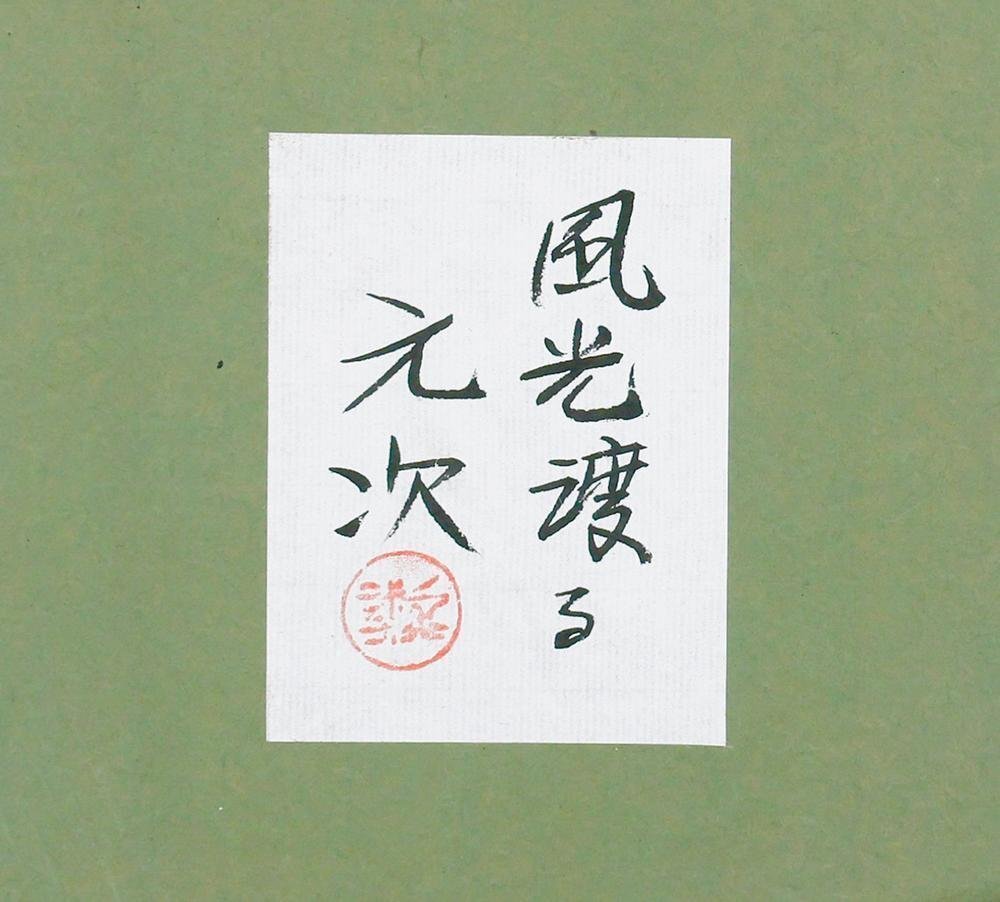 風光渡る
元次